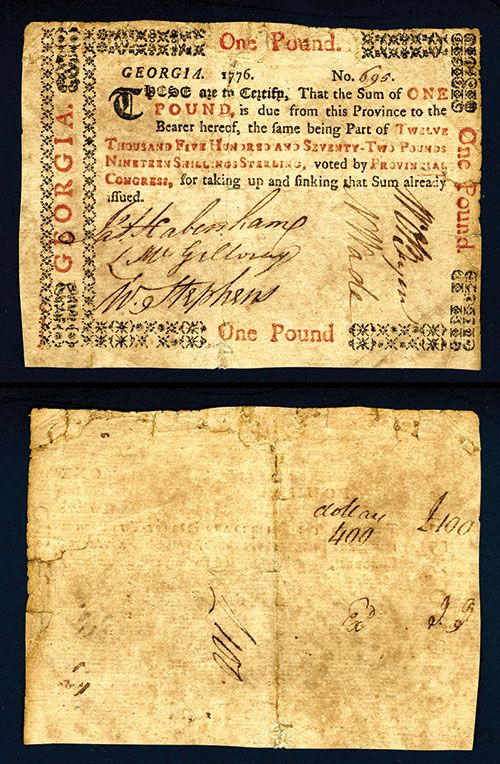 One Pound.
GEORGIA. 1776. No. 695.
THESE are to Certify, That the Sum of ONE
POUND, is due from this Province to the
Bearer hereof, the same being Part of TWELVE
THOUSAND FIVE HUNDRED AND SEVENTY-TWO POUNDS
NINETEEN SHILLINGS STERLING, voted by PROVINCIAL
CONGRESS, for taking up and sinking that Sum already
issued.
GEORGIA.
One Pound
Js Habersham
L McGillvray
W. Stephens
N Wade
One Pound
dollars
400
£100